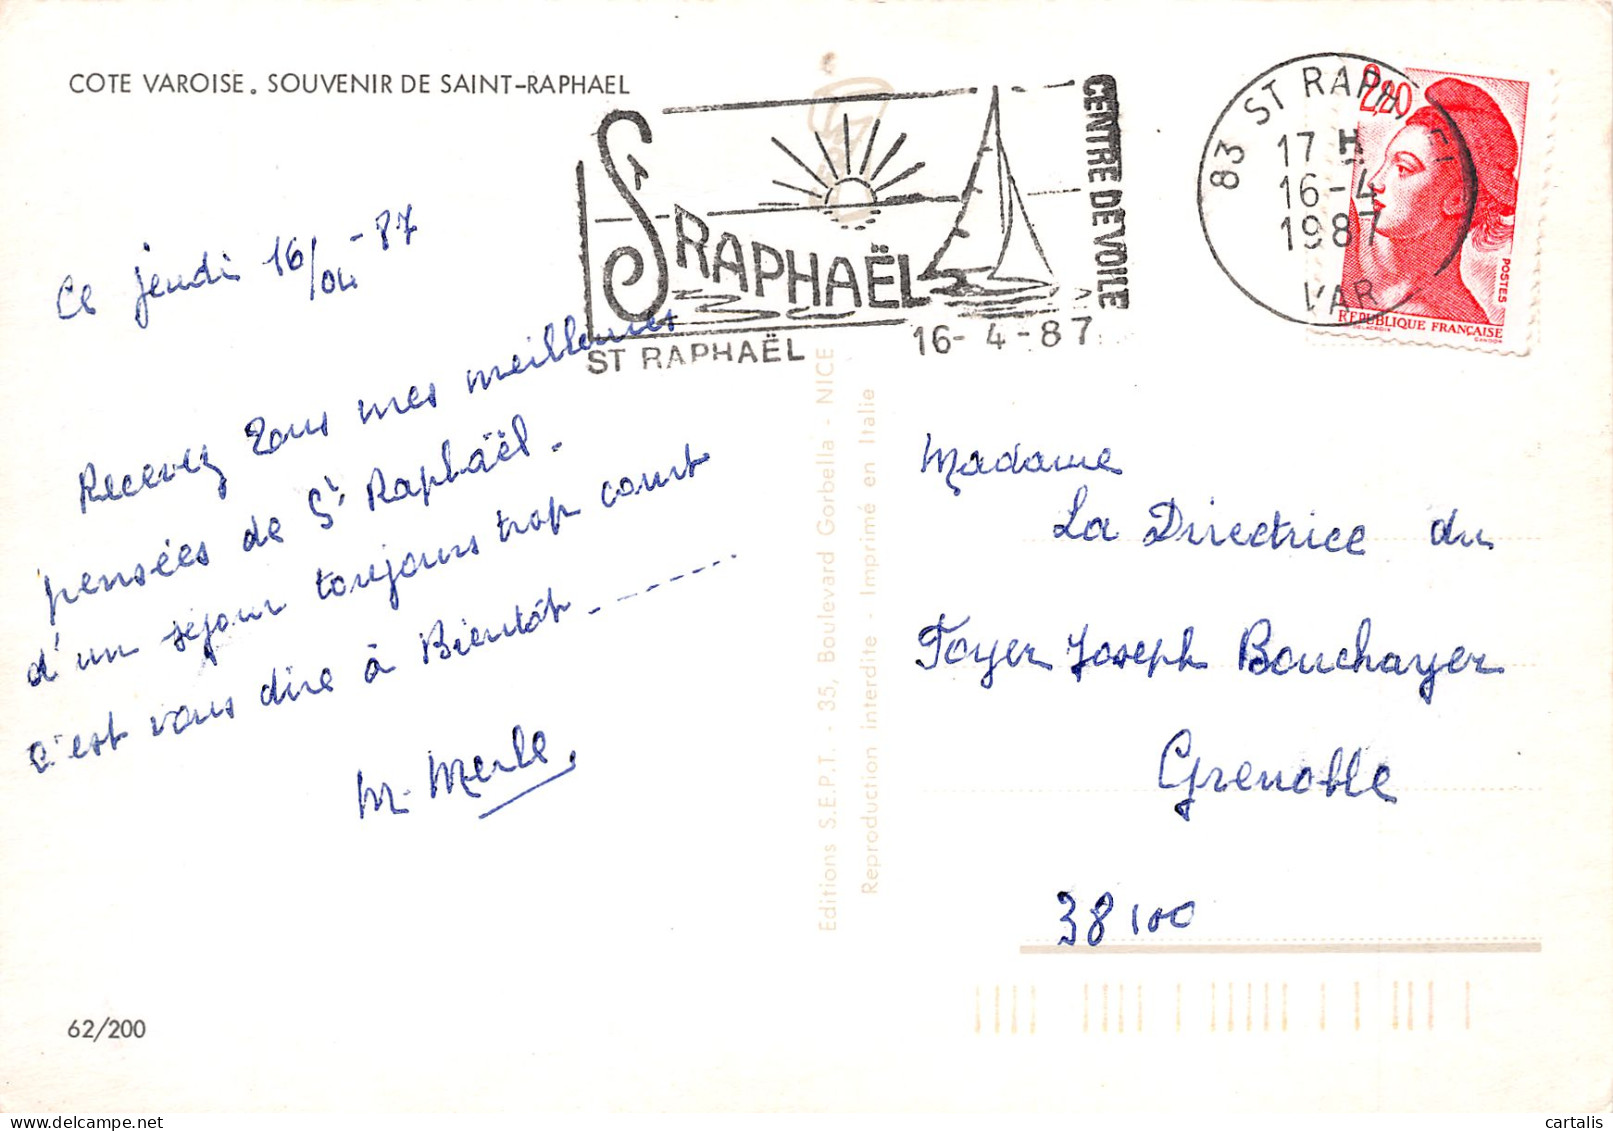 COTE VAROISE. SOUVENIR DE SAINT-RAPHAEL
Ce jeudi 16/04-87
Recevez tous mes meilleures
pensées de St Raphaël.
d'un séjour toujours trop court
c'est vous dire à Bientôt - - - - - -
M. Merle.
62/200
St RAPHAËL
CENTRE DE VOILE
ST RAPHAËL
16-4-87
83 ST RAPHAEL
17 H
16-4
1987
VAR
2,20
POSTES
REPUBLIQUE FRANÇAISE
Editions S.E.P.T. - 35, Boulevard Gorbella - NICE
Reproduction interdite - Imprimé en Italie
Madame
La Directrice du
Foyer Joseph Bouchayer
Grenoble
38100
cartalis